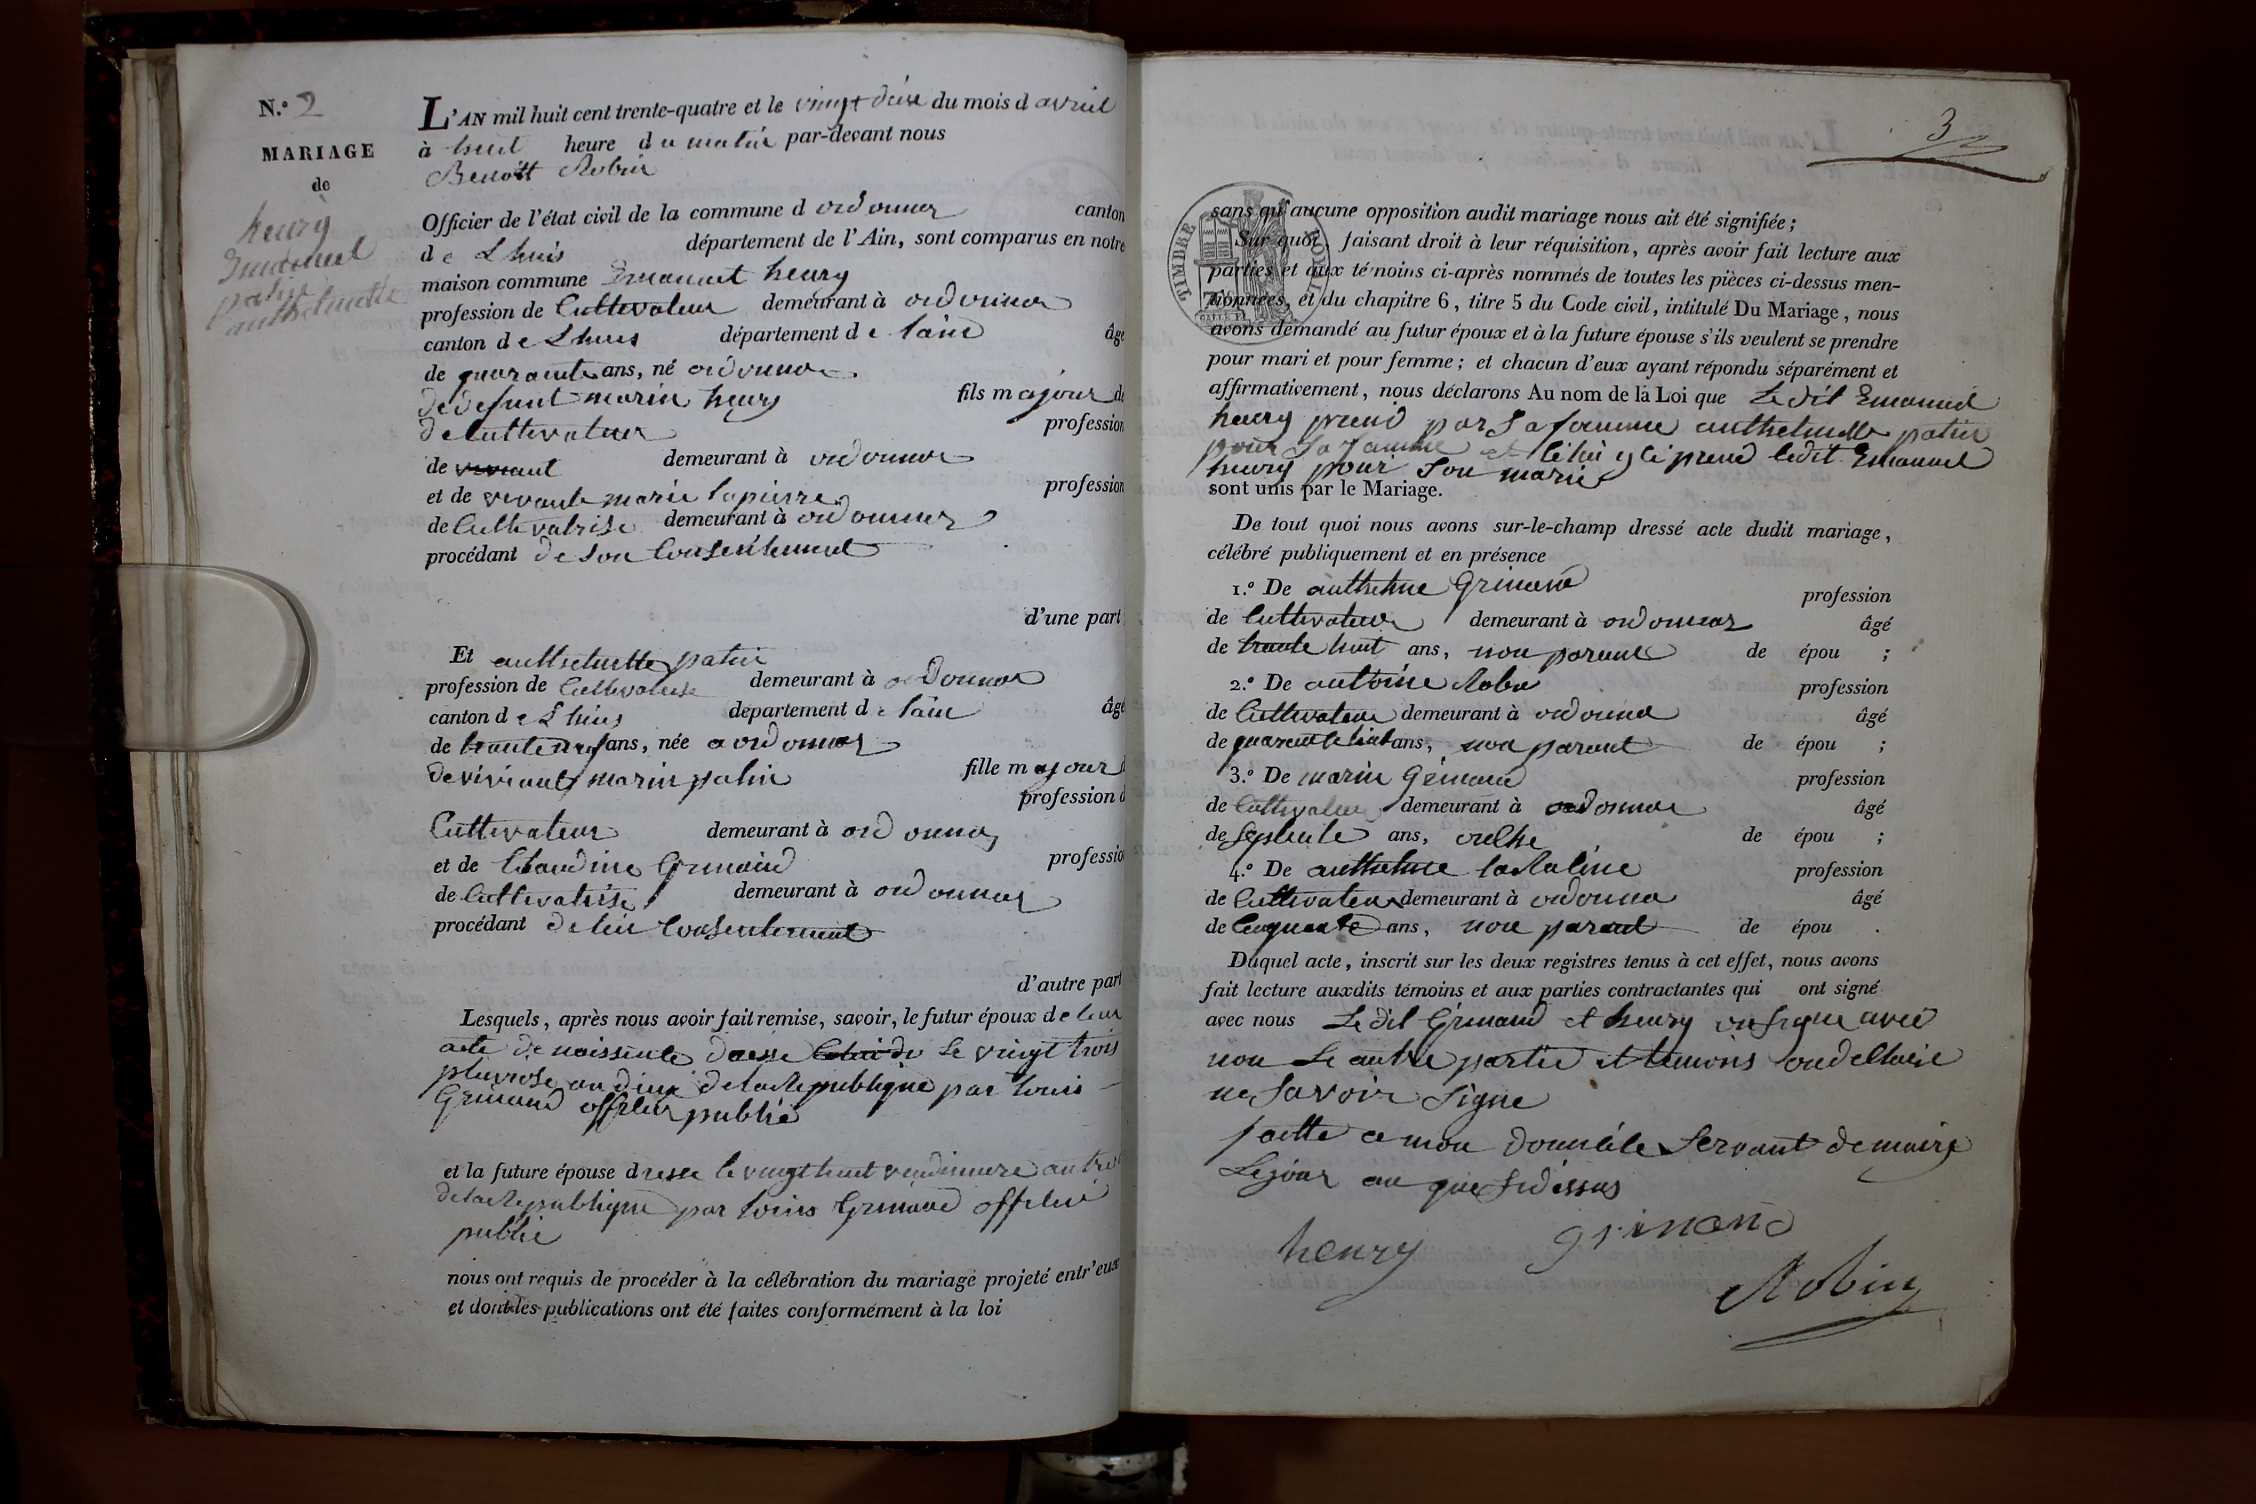 N.o 2
MARIAGE
de
henry
Emanuel
patin
anthelmette
L'AN mil huit cent trente-quatre et le vingt deux du mois d avril
à huit heure du matin par-devant nous
Benoitt Robin
Officier de l'état civil de la commune d ordonnas canton
de Lhuis département de l'Ain, sont comparus en notre
maison commune Emanuel henry
profession de Cultivateur demeurant à ordonnas
canton de Lhuis département de lain âgé
de quarante ans, né ordonnas
de defunt marin henry fils majeur de
de Cultivateur profession
de vivant demeurant à ordonnas
et de vivante marie lapierre profession
de Cultivatrise demeurant à ordonnas
procédant de son Consentement
d'une part
Et anthelmette patin
profession de Cultivateuse demeurant à ordonnas
canton de Lhuis département de lain âgé
de trante neuf ans, née a ordonnas
de vivant marin patin fille majour
profession d
Cultivateur demeurant à ordonnas
et de Claudine Grimand profession
de Cultivatrise demeurant à ordonnas
procédant de leur Consentement
d'autre part
Lesquels, après nous avoir fait remise, savoir, le futur époux de leur
acte de naissente le vingt trois
pluviose an deux de la Republique par louis
Grimand officier publie
et la future épouse dresse le vingt huit vendimiere an tre
de la Republique par louis Grimand officier
publie
nous ont requis de procéder à la célébration du mariage projeté entr'eux
et dont les publications ont été faites conformément à la loi
3
TIMBRE ROYAL
sans qu'aucune opposition audit mariage nous ait été signifiée ;
Sur quoi, faisant droit à leur réquisition, après avoir fait lecture aux
parties et aux témoins ci-après nommés de toutes les pièces ci-dessus men-
tionnées, et du chapitre 6, titre 5 du Code civil, intitulé Du Mariage, nous
avons demandé au futur époux et à la future épouse s'ils veulent se prendre
pour mari et pour femme ; et chacun d'eux ayant répondu séparément et
affirmativement, nous déclarons Au nom de la Loi que Le dit Emanuel
henry prend par Sa famme anthelmette patin
pour Sa famme et prend ledit Emanuel
henry pour Son marie
sont unis par le Mariage.
De tout quoi nous avons sur-le-champ dressé acte dudit mariage,
célébré publiquement et en présence
1.o De anthelme Grimand profession
de Cultivateur demeurant à ordonnas âgé
de trante huit ans, non parant de épou ;
2.o De antoine Robin profession
de Cultivateur demeurant à ordonnas âgé
de quarante ans, non parant de épou ;
3.o De marin Grimand profession
de Cultivateur demeurant à ordonnas âgé
de Septente ans, de épou ;
4.o De anthelme profession
de Cultivateur demeurant à ordonnas âgé
de Cinquante ans, non parant de épou .
Duquel acte, inscrit sur les deux registres tenus à cet effet, nous avons
fait lecture auxdits témoins et aux parties contractantes qui ont signé
avec nous Le dit Grimand et henry on signe avec
nou Le autre partie et temoins on delhare
ne Savoir Signe
faitte a mon Domicile Servant de maire
Le jour an que Sidessus
henry grimand
Robin